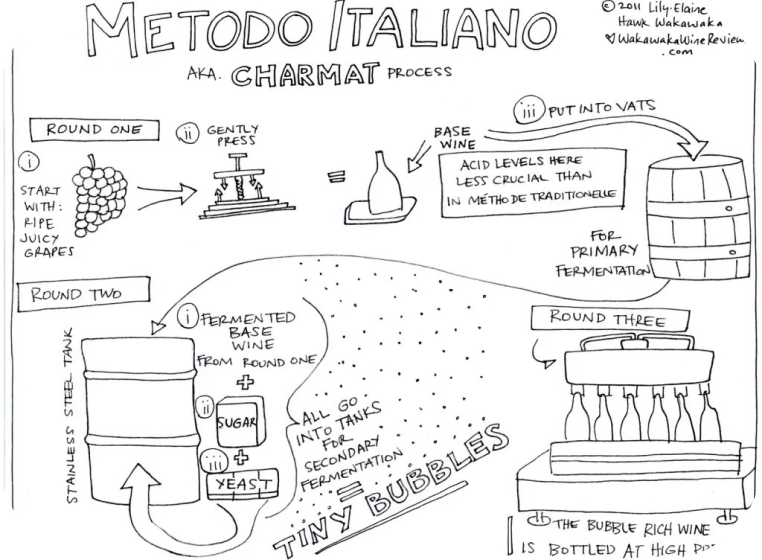 METODO ITALIANO
© 2011 Lily-Elaine
Hawk Wakawaka
WakawakaWineReview
.com
AKA. CHARMAT PROCESS
ROUND ONE
i
START
WITH:
RIPE
JUICY
GRAPES
ii GENTLY
PRESS
=
BASE
WINE
iii PUT INTO VATS
ACID LEVELS HERE
LESS CRUCIAL THAN
IN MÉTHODE TRADITIONELLE
FOR
PRIMARY
FERMENTATION
ROUND TWO
STAINLESS STEEL TANK
i FERMENTED
BASE
WINE
FROM ROUND ONE
+
ii SUGAR
+
iii YEAST
ALL GO
INTO TANKS
FOR
SECONDARY
FERMENTATION
=
TINY BUBBLES
ROUND THREE
THE BUBBLE RICH WINE
IS BOTTLED AT HIGH